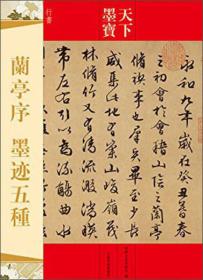 行書
天下
墨寶
蘭亭序 墨迹五種
永和九年歲在癸丑暮春
初會于會稽山陰之蘭亭
脩禊事也羣賢畢至少長
咸集此地有崇山峻嶺茂
林脩竹又有清流激湍暎
帶左右引以為流觴曲